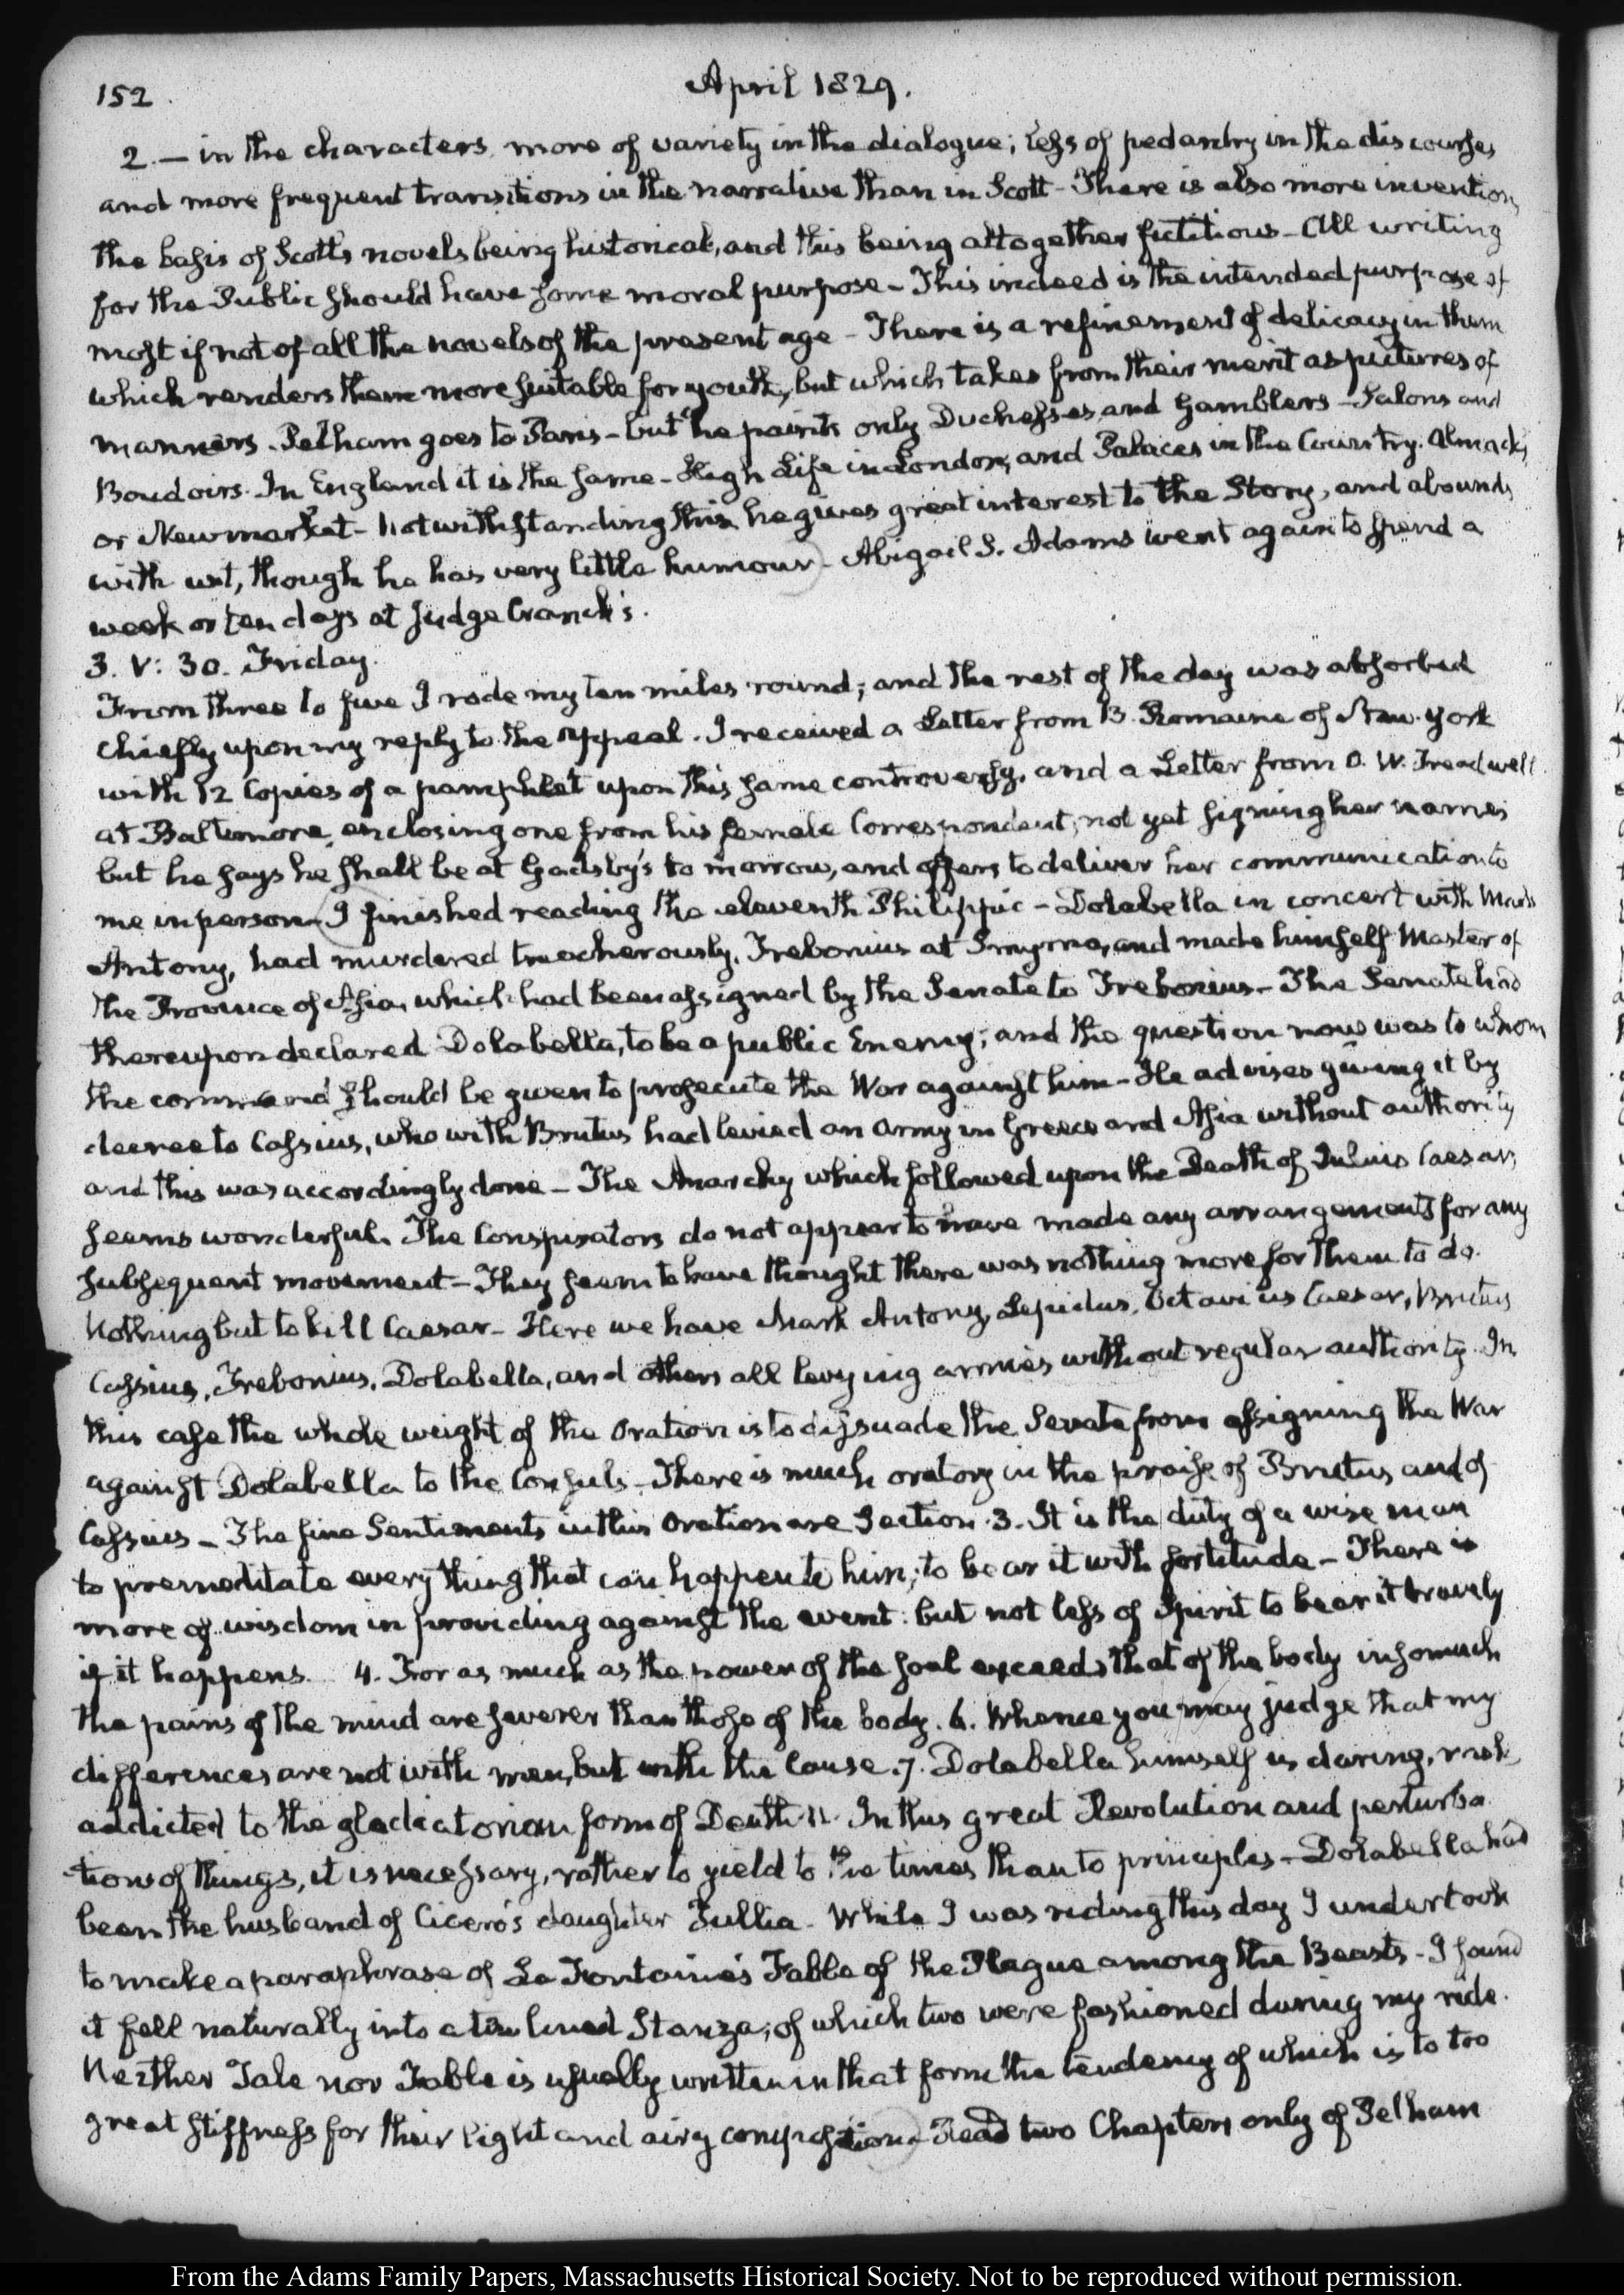 152
April 1829.
2. — in the characters, more of variety in the dialogue; less of pedantry in the discourses,
and more frequent transitions in the narrative than in Scott - There is also more invention,
the basis of Scott's novels being historical, and this being altogether fictitious - All writing
for the Public should have some moral purpose - This indeed is the intended purpose of
most if not of all the novels of the present age - There is a refinement of delicacy in them
which renders them more suitable for youth, but which takes from their merit as pictures of
manners. Pelham goes to Paris - but he paints only Duchesses and Gamblers - Salons and
Boudoirs. In England it is the same - High Life in London, and Palaces in the Country. Almacks,
or Newmarket - Notwithstanding this he gives great interest to the Story, and abounds
with wit, though he has very little humour - Abigail S. Adams went again to spend a
week or ten days at Judge Cranch's.
3. V: 30. Friday.
From three to five I rode my ten miles round; and the rest of the day was absorbed
chiefly upon my reply to the Appeal. I received a Letter from B. Romaine of New-York
with 12 Copies of a pamphlet upon this same controversy, and a Letter from O. W. Treadwell
at Baltimore, enclosing one from his female Correspondent, not yet signing her name;
but he says he shall be at Gadsby's to morrow, and offers to deliver her communication to
me in person - I finished reading the eleventh Philippic - Dolabella in concert with Mark
Antony, had murdered treacherously, Trebonius at Smyrna, and made himself Master of
the Province of Asia, which had been assigned by the Senate to Trebonius - The Senate had
thereupon declared Dolabella, to be a public Enemy; and the question now was to whom
the command should be given to prosecute the War against him - He advises giving it by
decree to Cassius, who with Brutus had levied an Army in Greece and Asia without authority
and this was accordingly done - The Anarchy which followed upon the Death of Julius Caesar,
seems wonderful. The Conspirators do not appear to have made any arrangements for any
subsequent movement - They seem to have thought there was nothing more for them to do.
Nothing but to kill Caesar - Here we have Mark Antony, Lepidus, Octavius Caesar, Brutus
Cassius, Trebonius, Dolabella, and others all levying armies without regular authority. In
this case the whole weight of the Oration is to dissuade the Senate from assigning the War
against Dolabella to the Consuls - There is much oratory in the praise of Brutus and of
Cassius - The fine Sentiments in this Oration are Section 3. It is the duty of a wise man
to premeditate every thing that can happen to him; to bear it with fortitude - There is
more of wisdom in providing against the event: but not less of Spirit to bear it bravely
if it happens. 4. For as much as the power of the soul exceeds that of the body insomuch
the pains of the mind are severer than those of the body. 6. Whence you may judge that my
differences are not with men, but with the Cause. 7. Dolabella himself is daring, rash,
addicted to the gladiatorian form of Death 11. In this great Revolution and perturba
-tions of things, it is necessary, rather to yield to the times than to principles - Dolabella had
been the husband of Cicero's daughter Tullia - While I was riding this day I undertook
to make a paraphrase of La Fontaine's Fable of the Plague among the Beasts - I found
it fell naturally into a ten lined Stanza; of which two were fashioned during my ride.
Neither Tale nor Fable is usually written in that form the tendency of which is to too
great stiffness for their light and airy composition - Read two Chapters only of Pelham
From the Adams Family Papers, Massachusetts Historical Society. Not to be reproduced without permission.